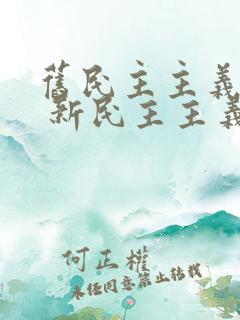 舊民主主義
新民主主義
何正權
未經同意禁止轉載